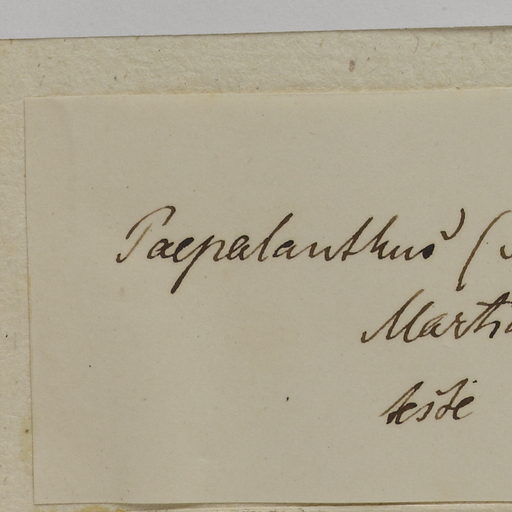 Paepalanthus (
Marti
teste